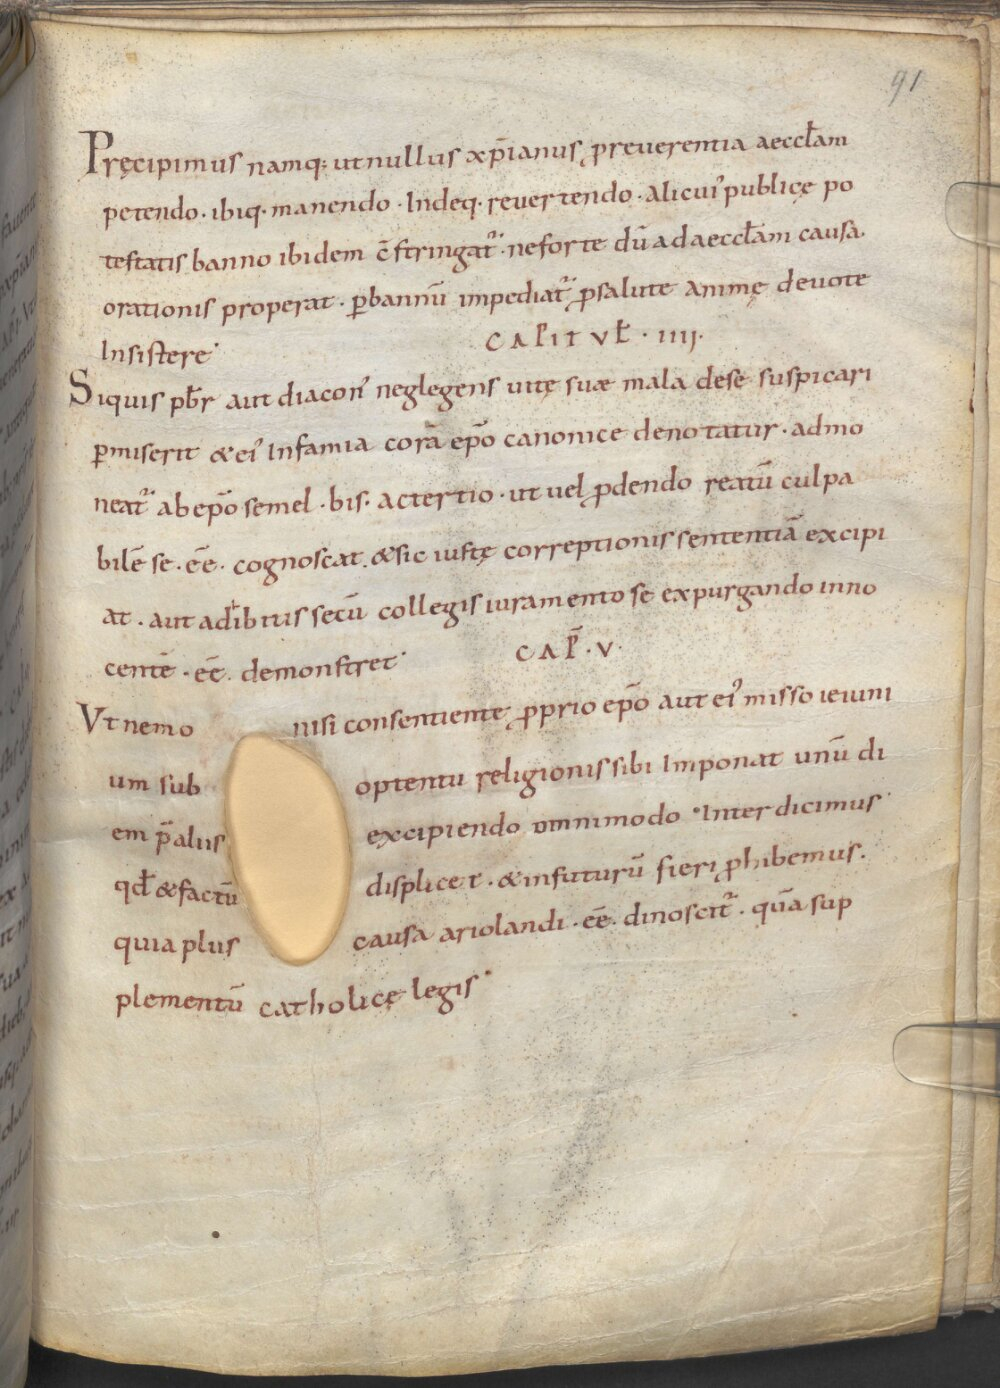 91
Pręcipimus namq; ut nullus xp̄ianus p̱reuerentia aeccƚam
petendo · ibiq· manendo · Indeq· reuertendo · alicui᾽ publicę po
testatis banno ibidem c̄stringat᷑ · ne forte dū ad aeccƚam causa
orationis properat · ꝑbannū impediat᷑ ꝓsalute animę deuote
Insistere·
CAPITVƚ · IIII·
Siquis pƀr aut diacon᾽ neglegens uitę suæ mala dese suspicari
ꝑmiserit &ei᾽ Infamia corā ep̄o canonice denotatur · admo
neat᷑ ab ep̄o semel · bis · ac tertio · ut uel ꝓdendo reatū culpa
bilē se · ēē · cognoscat · &sic iustę correptionis sententiā excipi
at · aut adibitis secū collegis iuramento se expurgando inno
centē · ēē · demonstret·
CAP̄ · V·
Vt nemo nisi consentiente ꝓprio ep̄o aut ei᾽ misso ieiuni
um sub optentu religionis sibi Imponat unū di
em p̄ aliis excipiendo omnimodo · Inter dicimus
qđ & factū displicet · & in futurū fieri ꝓhibemus ·
quia plus causa ariolandi · ēē · dinoscit᷑ · quā sup
plementū catholicę legis·